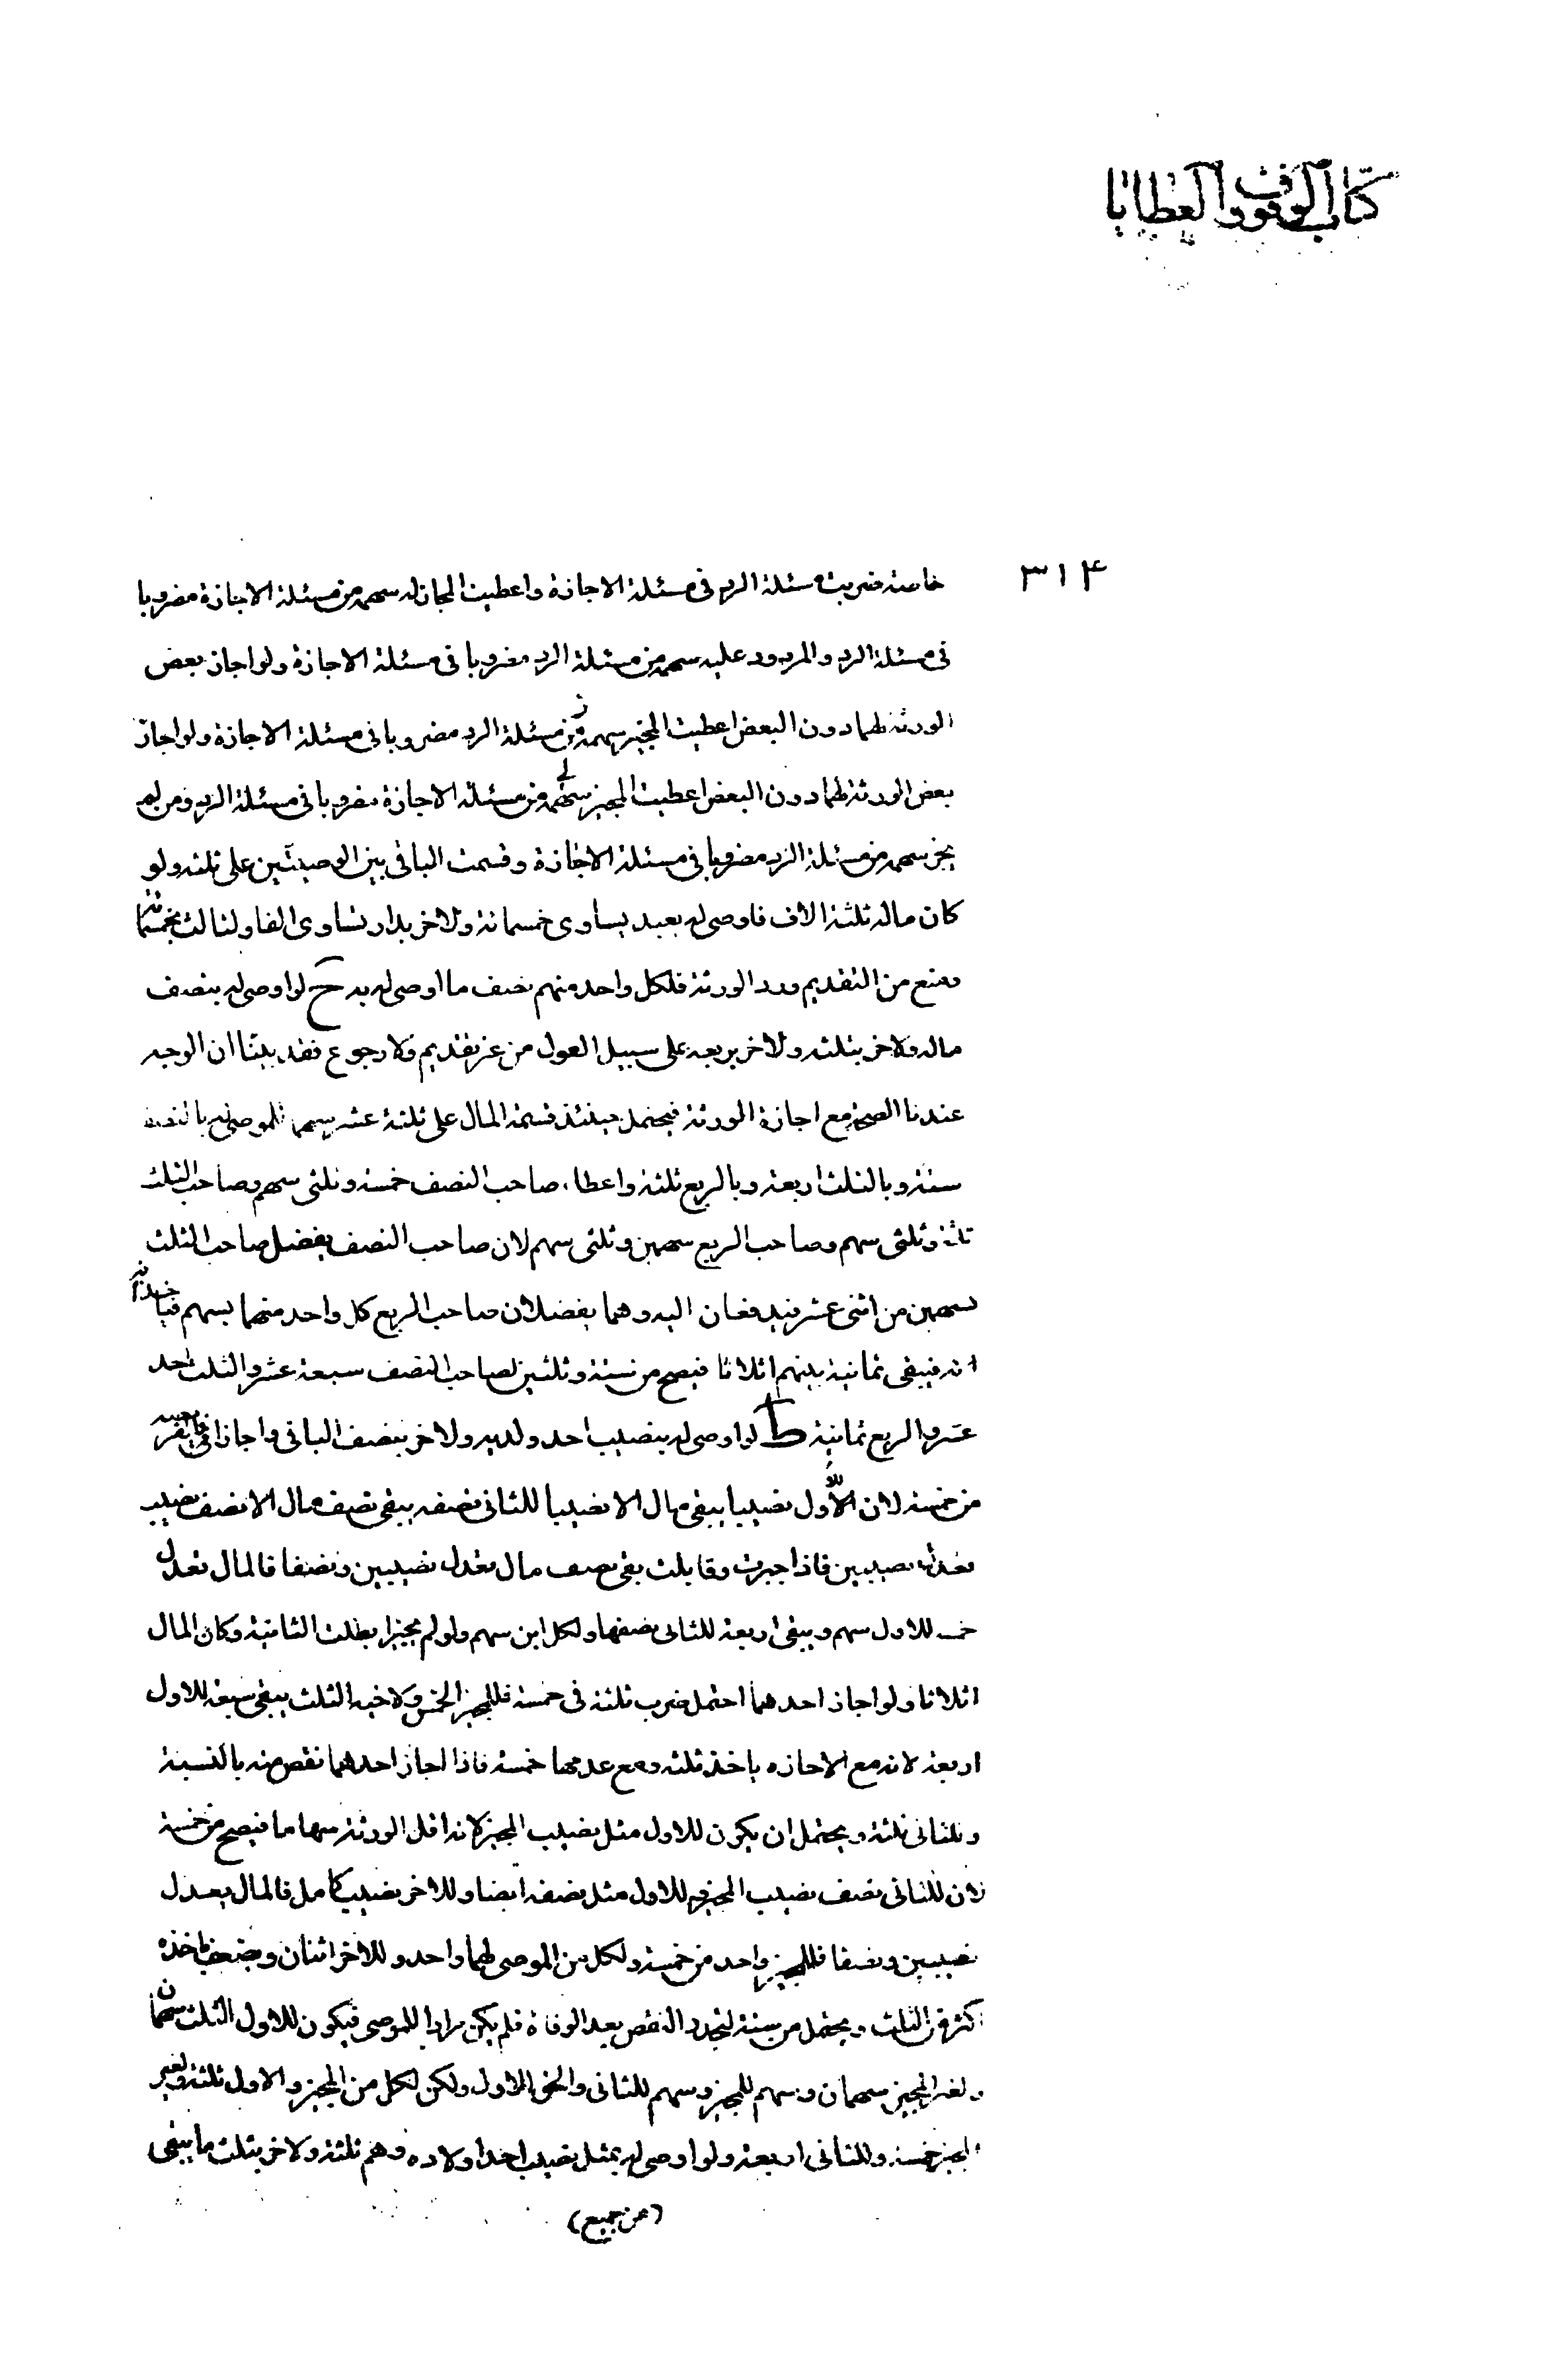 كتاب الوقوف والعطايا
٣١۴
خاصة ضربت مسئلة الرد فى مسئلة الاجازة واعطيت المجاز له سهمه من مسئلة الاجازة مضروبا
فى مسئلة الرد والمردود عليه سهمه من مسئلة الرد مضروبا فى مسئلة الاجازة ولو اجاز بعض
الورثة لهما دون البعض اعطيت المجيز سهمه من مسئلة الرد مضروبا فى مسئلة الاجازة ولو اجاز
بعض الورثة لهما دون البعض اعطيت المجيز سهمه من مسئلة الاجازة مضروبا فى مسئلة الرد ومن لم
يجز سهمه من مسئلة الرد مضروبا فى مسئلة الاجازة وقسمت الباقى بين الوصيتين على ثلثه ولو
كان ماله ثلثة الاف فاوصى له بعبد يساوى خمسمائة ولاخر بدار تساوى الفا ولثالث بخمسمائة
ومنع من التقديم ورد الورثة فلكل واحد منهم نصف ما اوصى له به ح لو اوصى له بنصف
ماله ولاخر بثلثه ولاخر بربعه على سبيل العول من غير تقديم ولا رجوع فقد بيّنا ان الوجه
عندنا الصحة مع اجازة الورثة فيحتمل حينئذ قسمة المال على ثلثة عشر سهما للموصى له بالنصف
ستة وبالثلث اربعة وبالربع ثلثة واعطاء صاحب النصف خمسة وثلثى سهم وصاحب الثلث
ثلثة وثلثى سهم وصاحب الربع سهمين وثلثى سهم لان صاحب النصف يفضل صاحب الثلث
بسهمين من اثنى عشر فيدفعان اليه وهما يفضلان صاحب الربع كل واحد منهما بسهم فياخذانه
انه فيبقى ثمانية بينهم اثلاثا فيصح من ستة وثلثين لصاحب النصف سبعة عشر والثلث احد
عشر والربع ثمانية ط لو اوصى له بنصيب احد ولديه ولاخر بنصف الباقى واجازا
من خمسة لان للاول نصيبا يبقى مال الا نصيبا للثانى نصفه يبقى نصف مال الا نصف نصيب
تعدل نصيبين فاذا جبرت وقابلت بقى نصف مال تعدل نصيبين ونصفا فالمال تعدل
خمسة للاول سهم ويبقى اربعة للثانى نصفها ولكل ابن سهم ولو لم يجيزا بطلت الثانية وكان المال
اثلاثا ولو اجاز احدهما احتمل ضرب ثلثة فى خمسة فللمجيز الخمس ولاخيه الثلث يبقى سبعة للاول
اربعة لانه مع الاجازه ياخذ ثلثه ومع عدمها خمسة فاذا اجاز احدهما نقص منه بالنسبة
وللثانى ثلثة ويحتمل ان يكون للاول مثل نصيب المجيز لانه اقل الورثة سهاما فيصح من خمسة
لان للثانى نصف نصيب المجيز وللاول مثل نصفه ايضا وللاخر نصيب كامل فالمال يعدل
نصيبين ونصفا فللمجيز واحد من خمسة ولكل من الموصى لهما واحد وللاخر اثنان ويضعف باخذه
اكثر من الثلث ويحتمل من ستة لتجدد النقص بعد الوفاة فلم يكن مرادا للموصى فيكون للاول الثلث سهمان
ولغير المجيز سهمان وسهم للمجيز وسهم للثانى والحق الاول ولكن لكل من المجيز والاول ثلثة ولغير
المجيز خمسة وللثانى اربعة ولو اوصى له بمثل نصيب احد اولاده وهم ثلثة ولاخر بثلث ما يبقى
(من جميع)